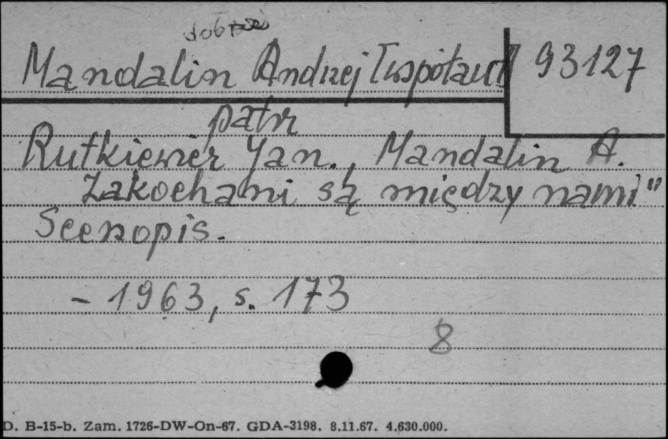 Mandalin Andrzej [współaut]
93127
patrz
Rutkiewicz Jan., Mandalin A.
Zakochani są między nami"
Scenopis.
- 1963, s. 173
8
D. B-15-b. Zam. 1726-DW-On-67. GDA-3198. 8.11.67. 4.630.000.